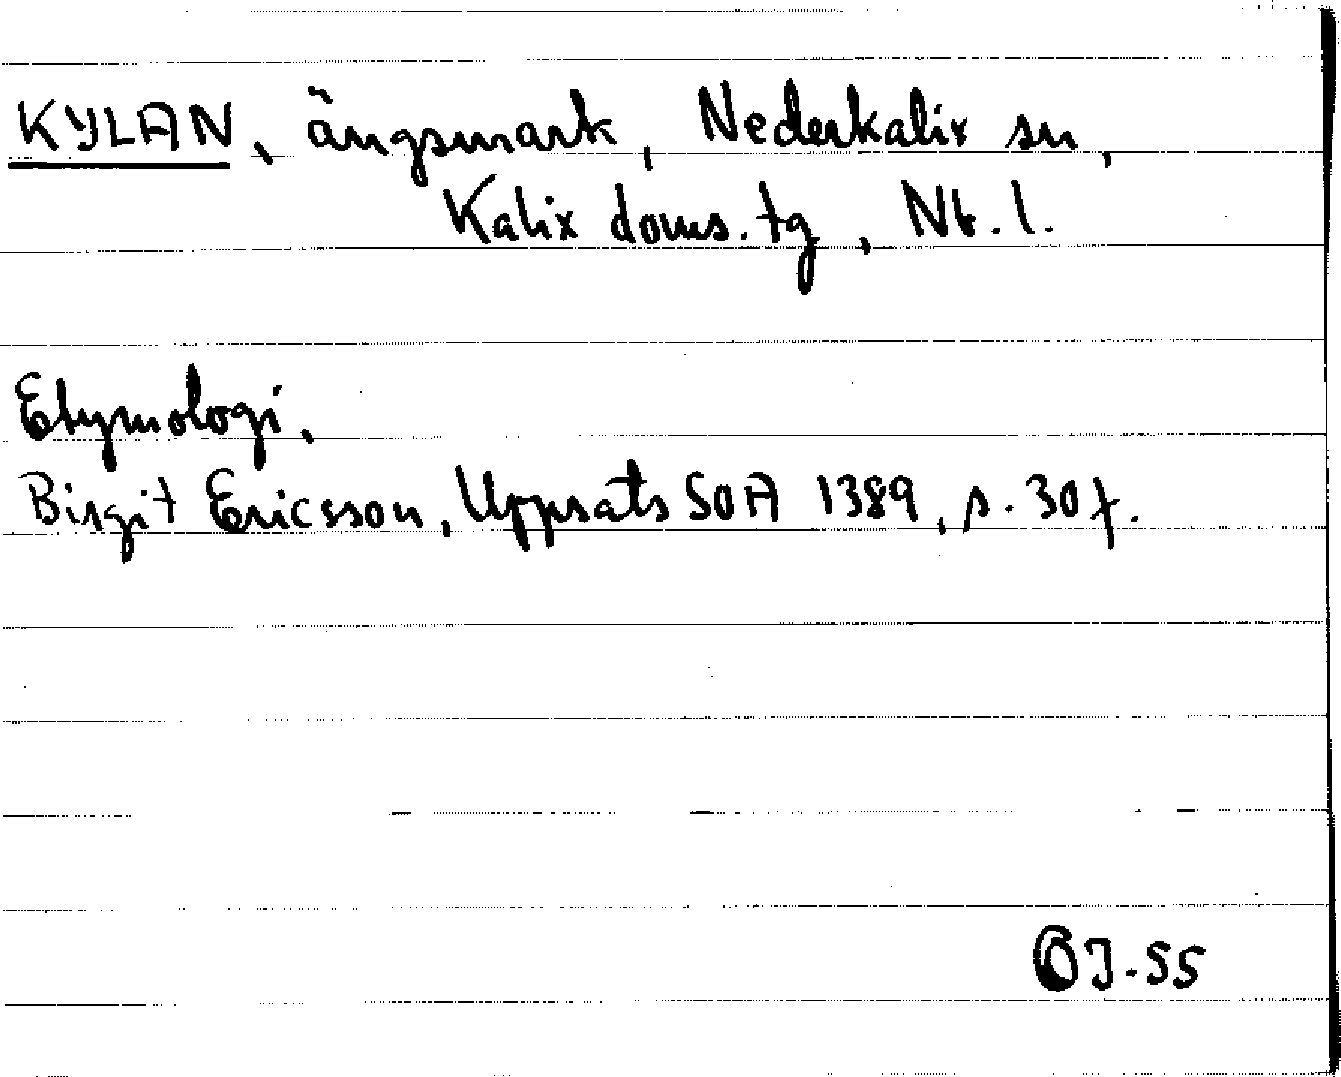 KYLAN, ängsmark, Nederkalix sn,
Kalix doms.tg, Nb.l.
Etymologi.
Birgit Ericsson, Uppsats SOA 1389, s. 30 f.
OJ-55